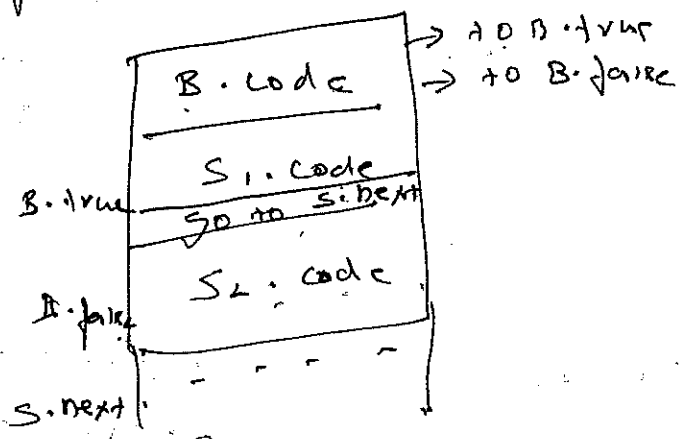 B.code → to B.true
→ to B.false
S1.code
B.true
go to S.next
S2.code
B.false
- - - -
S.next